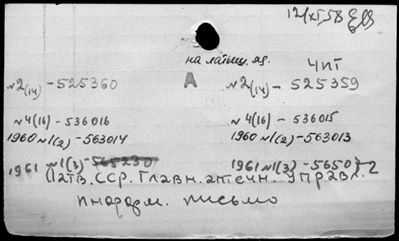 12/XI.58
на латыш. яз.
ЧИТ
№2(14) - 525360 А №2(14) - 525359
№4(16) - 536016 №4(16) - 536015
1960 №1(2) - 563014 1960 №1(2) - 563013
1961 №1(3) - 565230 1961 №1(3) - 5650
Латв. ССР. Главн. аптечн. управл.
Информ. письмо